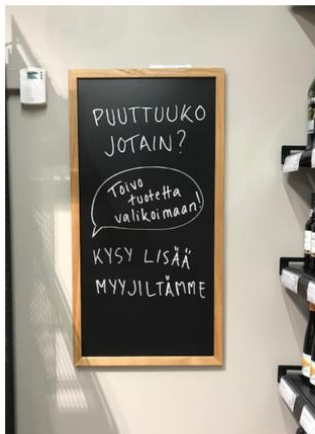 PUUTTUUKO
JOTAIN?
Toivo
tuotetta
valikoimaan!
KYSY LISÄÄ
MYYJILTÄMME